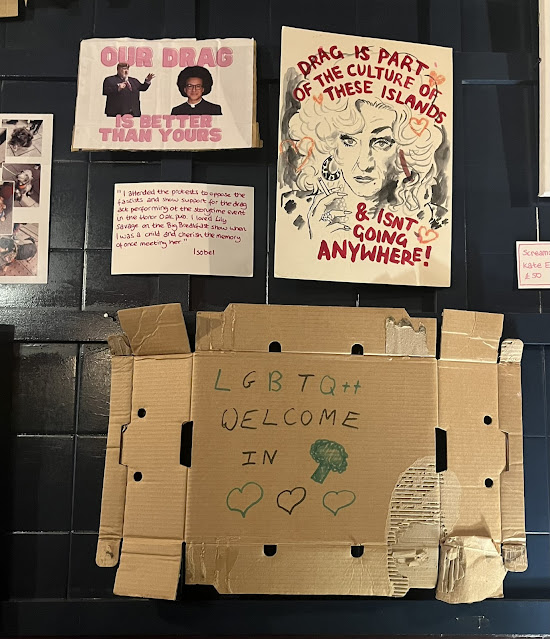 OUR DRAG
IS BETTER
THAN YOURS
DRAG IS PART
OF THE CULTURE OF
THESE ISLANDS
& ISNT
GOING
ANYWHERE!
"I attended the protests to oppose the
fascists and show support for the drag
act performing at the storytime event
in the Honor Oak pub. I loved Lily
Savage on the Big Breakfast show when
I was a child and cherish the memory
of once meeting her."
Isobel
Kate E
£30
LGBTQ++
WELCOME
IN